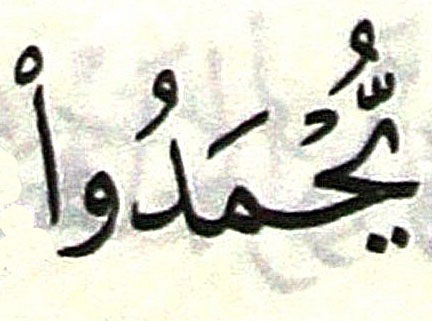 يُّحْمَدُواْ